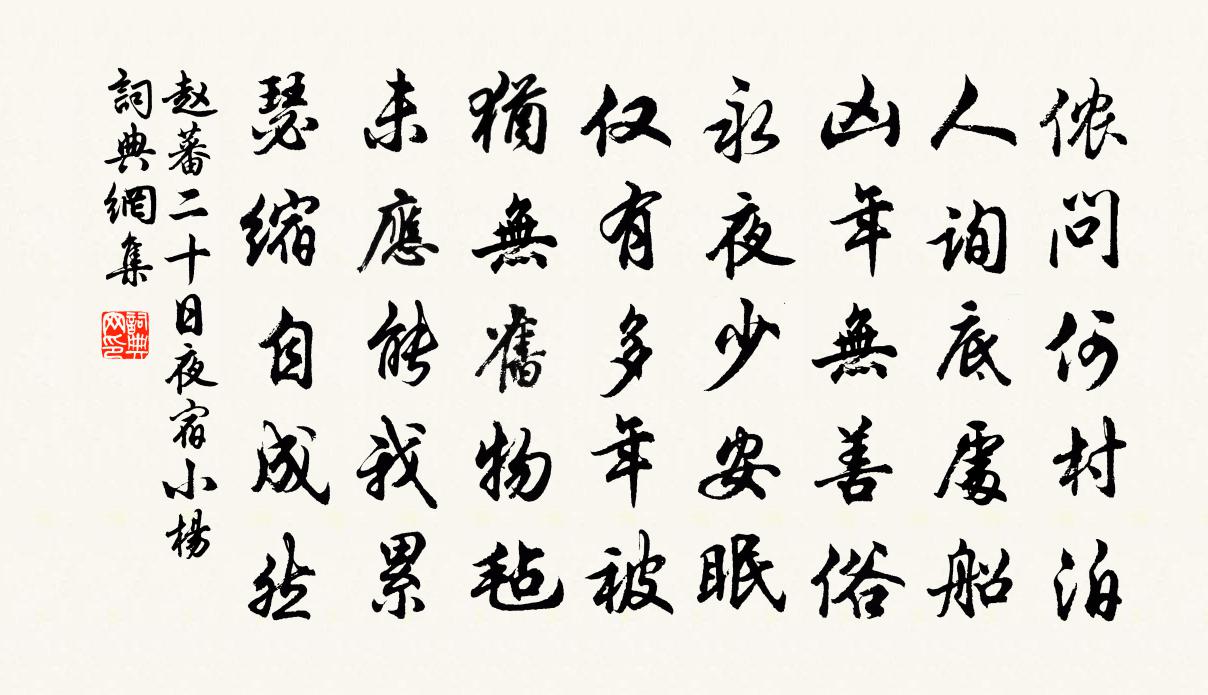 侬问何村泊
人询底處船
凶年無善俗
永夜少安眠
仅有多年被
猶無舊物毡
未應能我累
瑟缩自成然
赵蕃二十日夜宿小楊
詞典網集
詞典网印